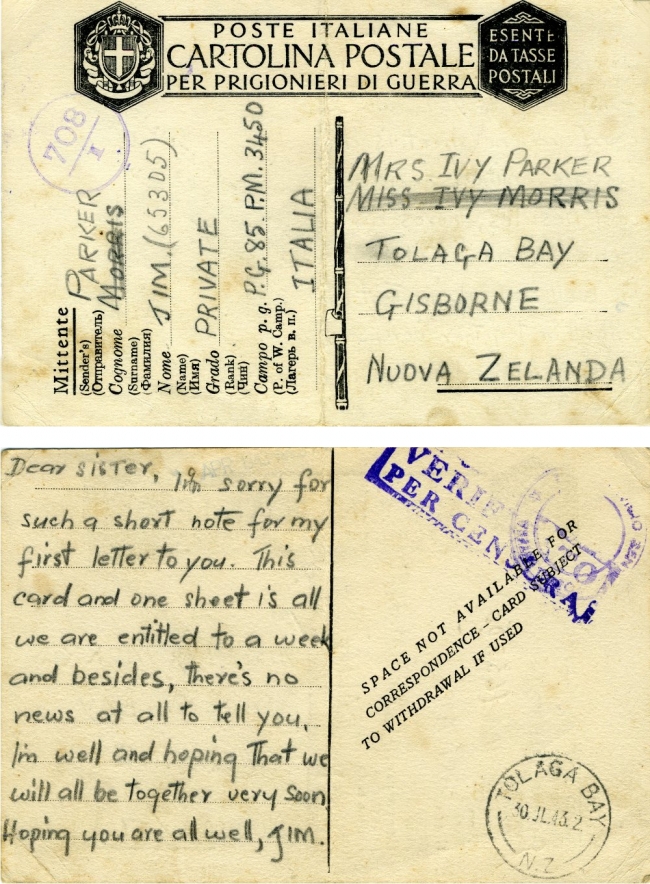 POSTE ITALIANE
CARTOLINA POSTALE
PER PRIGIONIERI DI GUERRA
ESENTE
DA TASSE
POSTALI
708
I
Mittente
(Sender's)
(Отправитель)
PARKER
MORRIS
Cognome
(Surname)
(Фамилия)
JIM. (65305)
Nome
(Name)
(Имя)
PRIVATE
Grado
(Rank)
(Чин)
P.G. 85. P.M. 3450
Campo p. g.
(P. of W. Camp.)
(Лагерь в. п.)
ITALIA
MRS IVY PARKER
MISS IVY MORRIS
TOLAGA BAY
GISBORNE
NUOVA ZELANDA
Dear sister, I'm sorry for
such a short note for my
first letter to you. This
card and one sheet is all
we are entitled to a week
and besides, there's no
news at all to tell you.
I'm well and hoping that we
will all be together very soon
Hoping you are all well, JIM.
VERIF
PER CENSURA
SPACE NOT AVAILABLE FOR
CORRESPONDENCE - CARD SUBJECT
TO WITHDRAWAL IF USED
TOLAGA BAY
30 JL.43.2
N.Z.